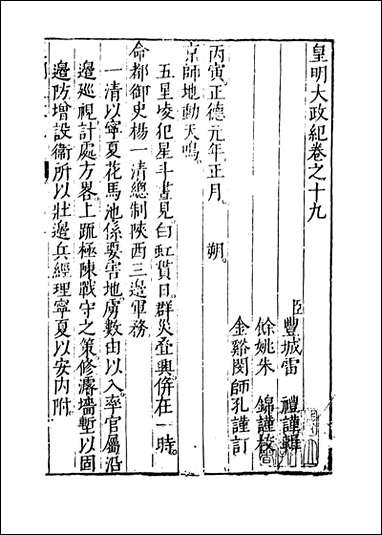 皇明大政紀卷之十九
臣豐城雷 禮謹輯
餘姚朱 錦謹校
金谿閔師孔謹訂
丙寅正德元年正月 朔
京師地動天鳴
五星凌犯星斗晝見白虹貫日群災叠興併在一時
命都御史楊一清總制陝西三邊軍務
一清以寧夏花馬池係要害地虜數由以入率官屬沿
邊廵視計處方畧上疏極陳戰守之策修濬墻塹以固
邊防增設衛所以壯邊兵經理寧夏以安內附